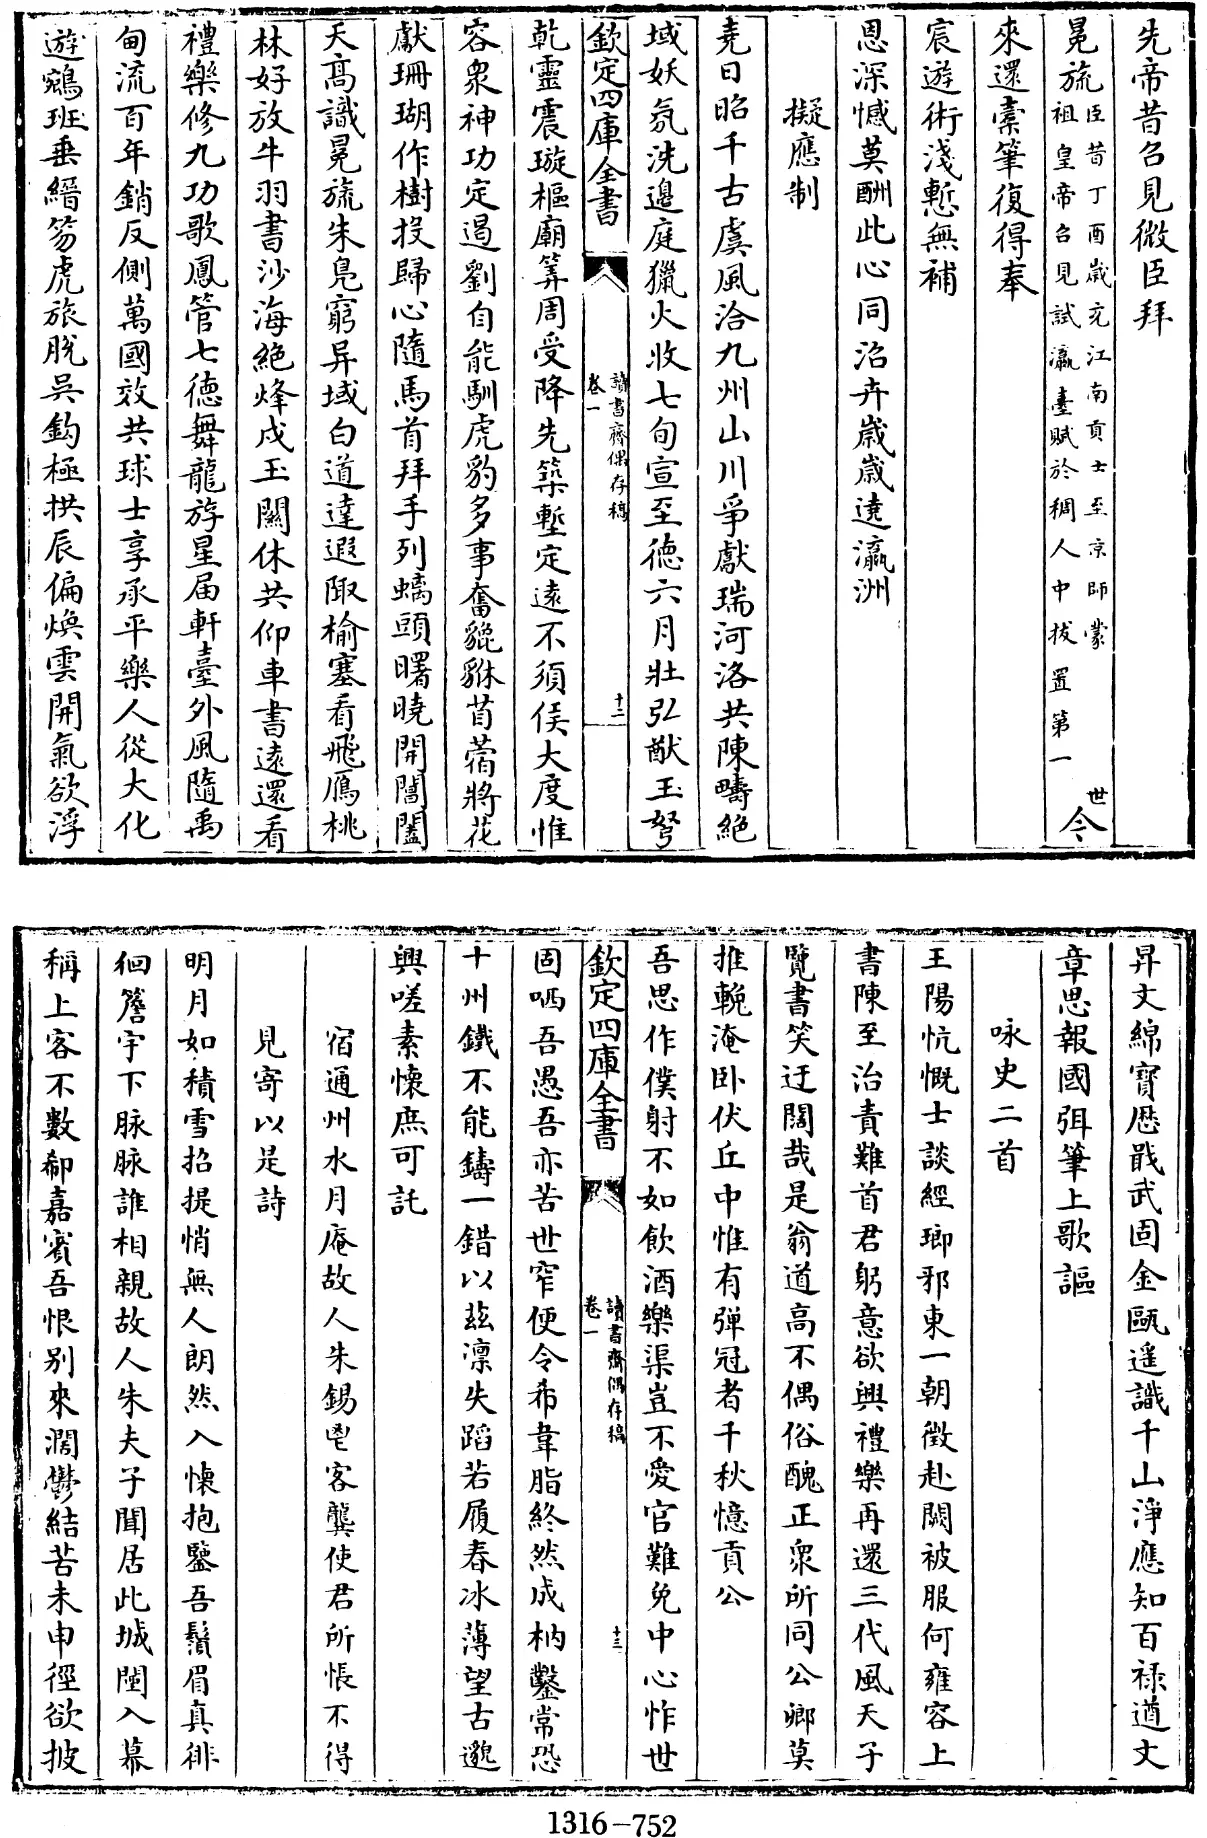 先帝昔召見微臣拜
冕旒臣昔丁酉歲充江南貢士至京師蒙世祖皇帝召見試瀛臺賦於稠人中拔置第一令
來還橐筆復得奉
宸遊術淺慙無補
恩深憾莫酬此心同沿卉歲歲遶瀛洲
擬應制
堯日昭千古虞風洽九州山川爭獻瑞河洛共陳疇絶
域妖氛洗邊庭獵火收七旬宣至德六月壯弘猷玉弩
欽定四庫全書
讀書齋偶存稿
卷一
十二
乾靈震璇樞廟筭周受降先築塹定遠不須侯大度惟
容衆神功定遏劉自能馴虎豹多事奮貔貅苜蓿將花
獻珊瑚作樹投歸心隨馬首拜手列螭頭曙曉開閶闔
天高識冕旒朱鳧窮异域白道達遐陬榆塞看飛鴈桃
林好放牛羽書沙海絶烽戍玉關休共仰車書遠還看
禮樂修九功歌鳳管七德舞龍斿星届軒臺外風隨禹
甸流百年銷反側萬國效共球士享承平樂人從大化
遊鵷班垂縉笏虎旅脱吳鈎極拱辰偏煥雲開氣欲浮
昇文綿寳厯戢武固金甌遥識千山淨應知百禄遒文
章思報國弭筆上歌謳
咏史二首
王陽忼慨士談經瑯邪東一朝徵赴闕被服何雍容上
書陳至治責難首君躬意欲興禮樂再還三代風天子
覽書笑迂闊哉是翁道高不偶俗醜正衆所同公卿莫
推輓淹卧伏丘中惟有彈冠者千秋憶貢公
吾思作僕射不如飲酒樂渠豈不愛官難免中心怍世
欽定四庫全書
讀書齋偶存稿
卷一
十三
固哂吾愚吾亦苦世窄便令希韋脂終然成枘鑿常恐
十州鐵不能鑄一錯以兹凛失蹈若履春冰薄望古邈
興嗟素懷庶可託
宿通州水月庵故人朱錫鬯客龔使君所悵不得
見寄以是詩
明月如積雪招提悄無人朗然入懷抱鑒吾鬚眉真徘
徊簷宇下脉脉誰相親故人朱夫子聞居此城闉入幕
稱上客不數郗嘉賓吾恨别來濶鬱結苦未申徑欲披
1316-752